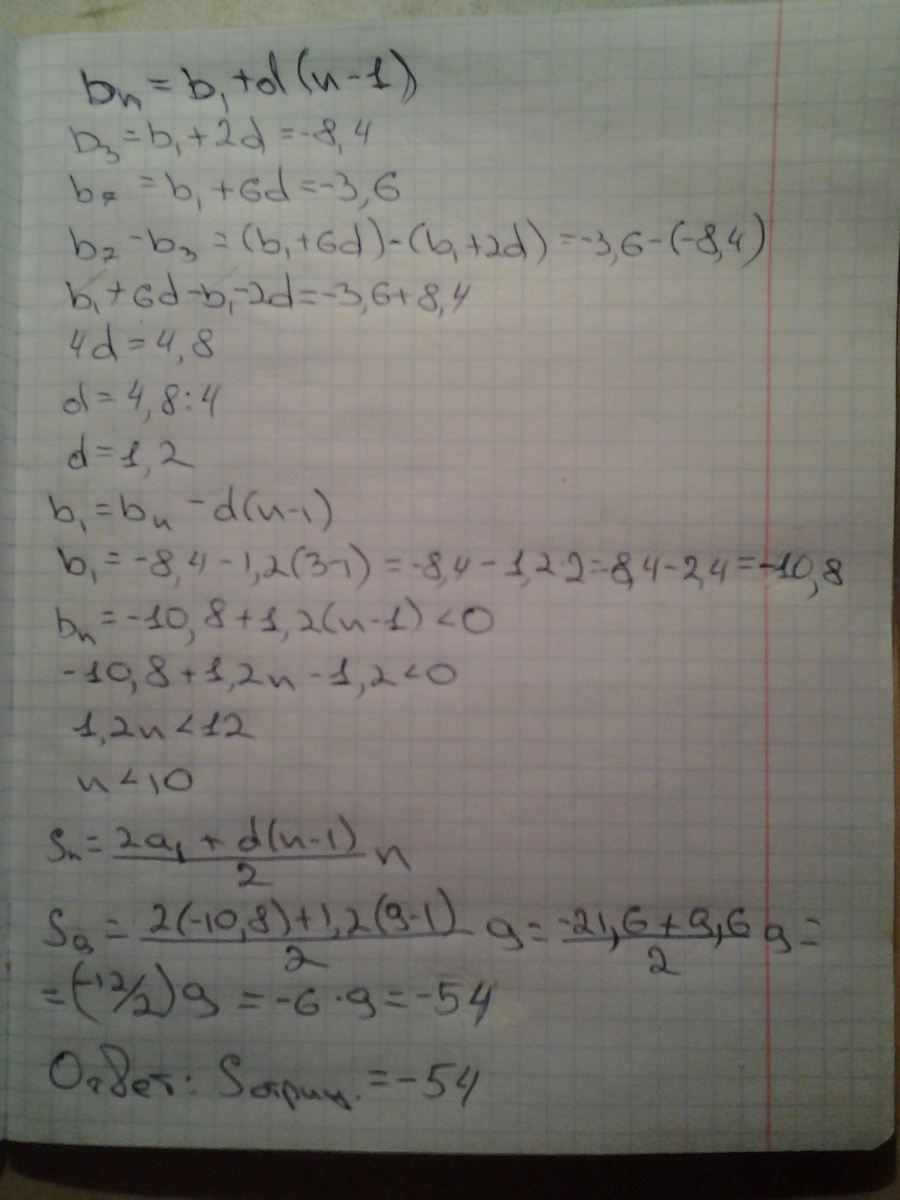 bₙ = b₁ + d(n-1)
b₃ = b₁ + 2d = -8,4
b₇ = b₁ + 6d = -3,6
b₇ - b₃ = (b₁ + 6d) - (b₁ + 2d) = -3,6 - (-8,4)
b₁ + 6d - b₁ - 2d = -3,6 + 8,4
4d = 4,8
d = 4,8 : 4
d = 1,2
b₁ = bₙ - d(n-1)
b₁ = -8,4 - 1,2(3-1) = -8,4 - 1,2·2 = -8,4 - 2,4 = -10,8
bₙ = -10,8 + 1,2(n-1) < 0
-10,8 + 1,2n - 1,2 < 0
1,2n < 12
n < 10
Sₙ = (2a₁ + d(n-1))/2 n
S₉ = (2(-10,8) + 1,2(9-1))/2 9 = (-21,6 + 9,6)/2 9 =
= (-12/2)9 = -6·9 = -54
Ответ: Sотриц. = -54